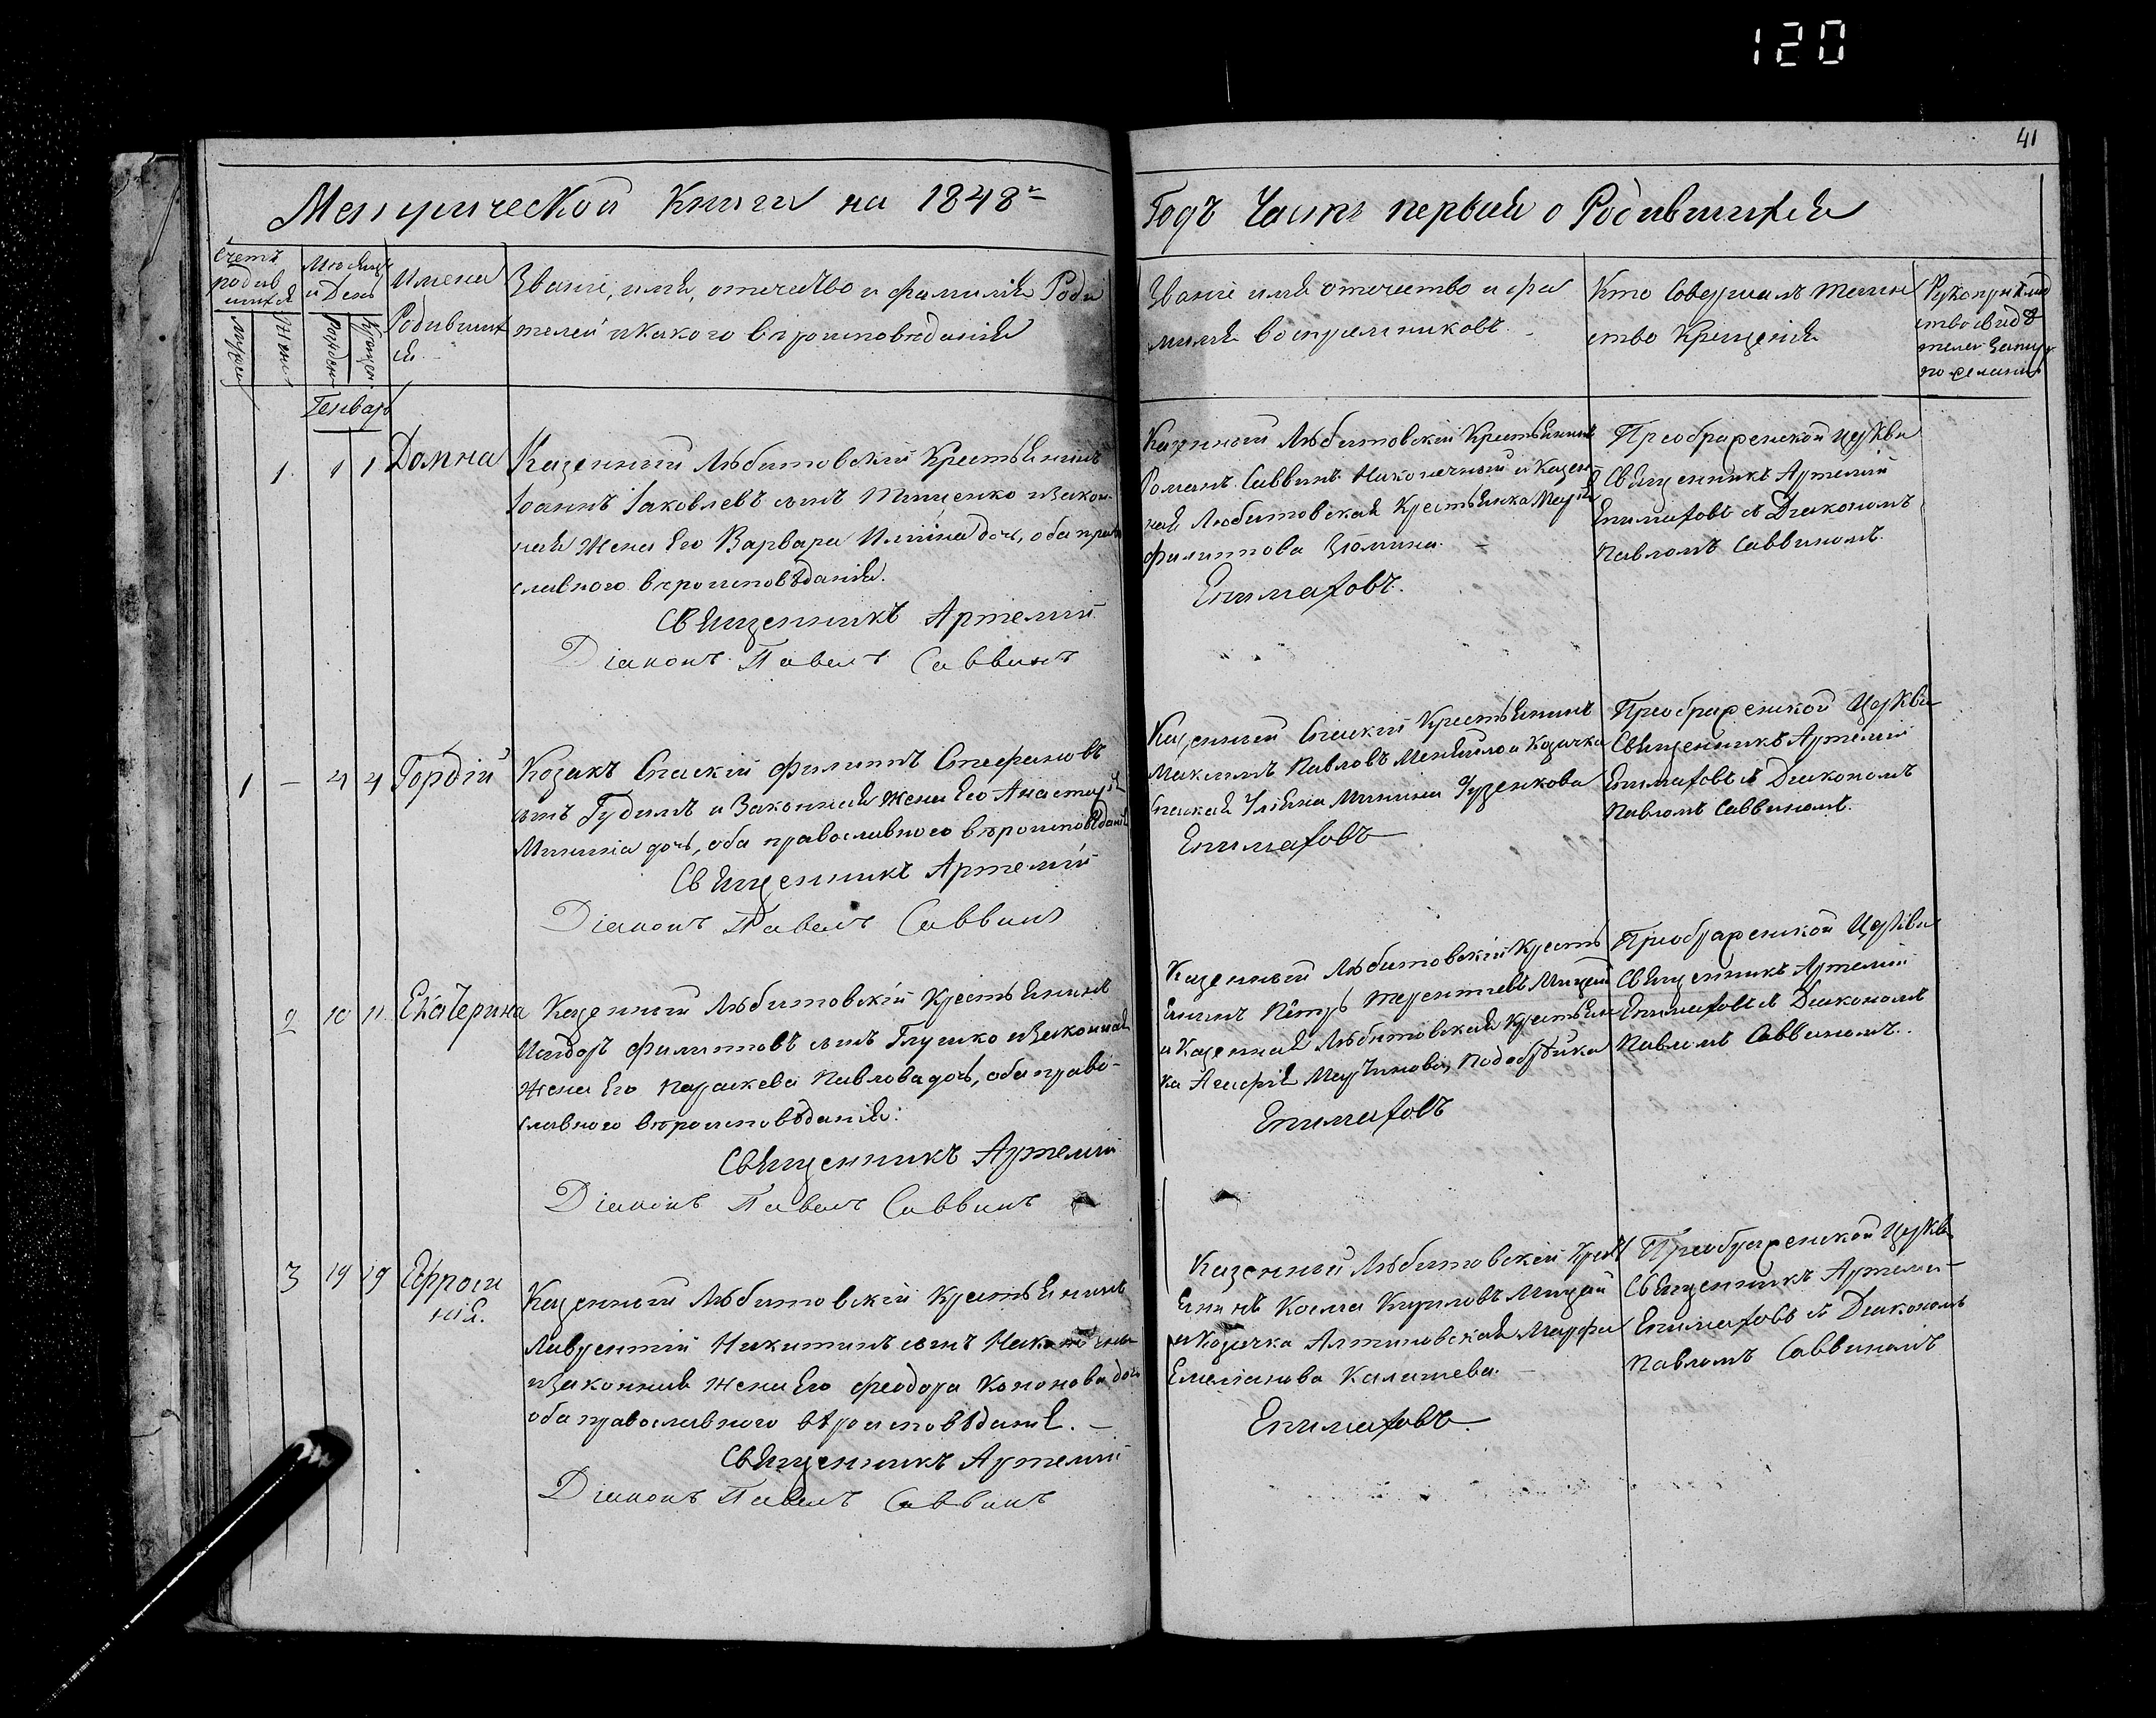 120
41
Метрической Книги на 1848й
Годъ Часть первая о Родившихся
Счетъ родив шихся
Мужеска
Женска
Месяцъ и День
Рожденія
Крещен
Имена Родивших ся.
Званіе, имя, отечество и фамилія Роди
телей и какого вероисповеданія
Званіе имя отечество и фа
милія восприемниковъ.
Кто Совершалъ таин
ство Крещенія
Рукоприклад
ство свидѣ
телей записи
по желанію
Генварь
1. 1 1 Домна
Казенный Любитовскій Крестьянинъ
Іоаннъ Іаковлевъ сынъ Тищенко и закон
ная Жена Его Варвара Иліина дочь, оба право
славного вероисповѣданія.
Священникъ Артемій
Діаконъ Павелъ Саввинъ
Казенный Любитовскій Крестьянинъ
Романъ Саввинъ Наконечный и Казен
ная Любитовская Крестьянка Марія
Филиппова Зюмина. -
Епимаховъ.
Преображенской церкви
Священникъ Артемій
Епимаховъ съ Діакономъ
Павломъ Саввиномъ.
1 - 4 4 Гордій
Козакъ Спаскій Филиппъ Стефановъ
сынъ Гудимъ и Законная Жена Его Анастасія
Минина дочь, оба православного вероисповѣданія
Священникъ Артемій
Діаконъ Павелъ Саввинъ
Казенный Спаскій Крестьянинъ
Максимъ Павловъ и Козачка
Спаская Уліяна Минина
Епимаховъ
Преображенской Церкви
Священникъ Артемій
Епимаховъ съ Діакономъ
Павломъ Саввиномъ.
2 10 11 Екатерина
Казенный Любитовскій Крестьянинъ
Исидоръ Филипповъ сынъ Глушко и законная
Жена Его Параскева Павлова дочь, оба право-
славного вероисповѣданія.
Священникъ Артемій
Діаконъ Павелъ Саввинъ
Казенный Любитовскій Кресть
янинъ Петръ Терентіевъ Мицай
и Казенная Любитовская Крестьян
ка Агафія Мартинова
Епимаховъ
Преображенской Церкви
Священникъ Артемій
Епимаховъ съ Діакономъ
Павломъ Саввиномъ.
3 19 19 Ефроси
нія.
Казенный Любитовскій Крестьянинъ
Лаврентій Никитинъ сынъ
и законная жена Его Феодора Кононова дочь
оба православного вѣроисповѣданія. -
Священникъ Артемій
Діаконъ Павелъ Саввинъ
Казенный Любитовскій Кресть
янинъ Косма Кириловъ Мицай
и Козачка Алтиновская Марфа
Емеліанова Калашева. -
Епимаховъ.
Преображенской Церкви
Священникъ Артемій
Епимаховъ съ Діакономъ
Павломъ Саввиномъ